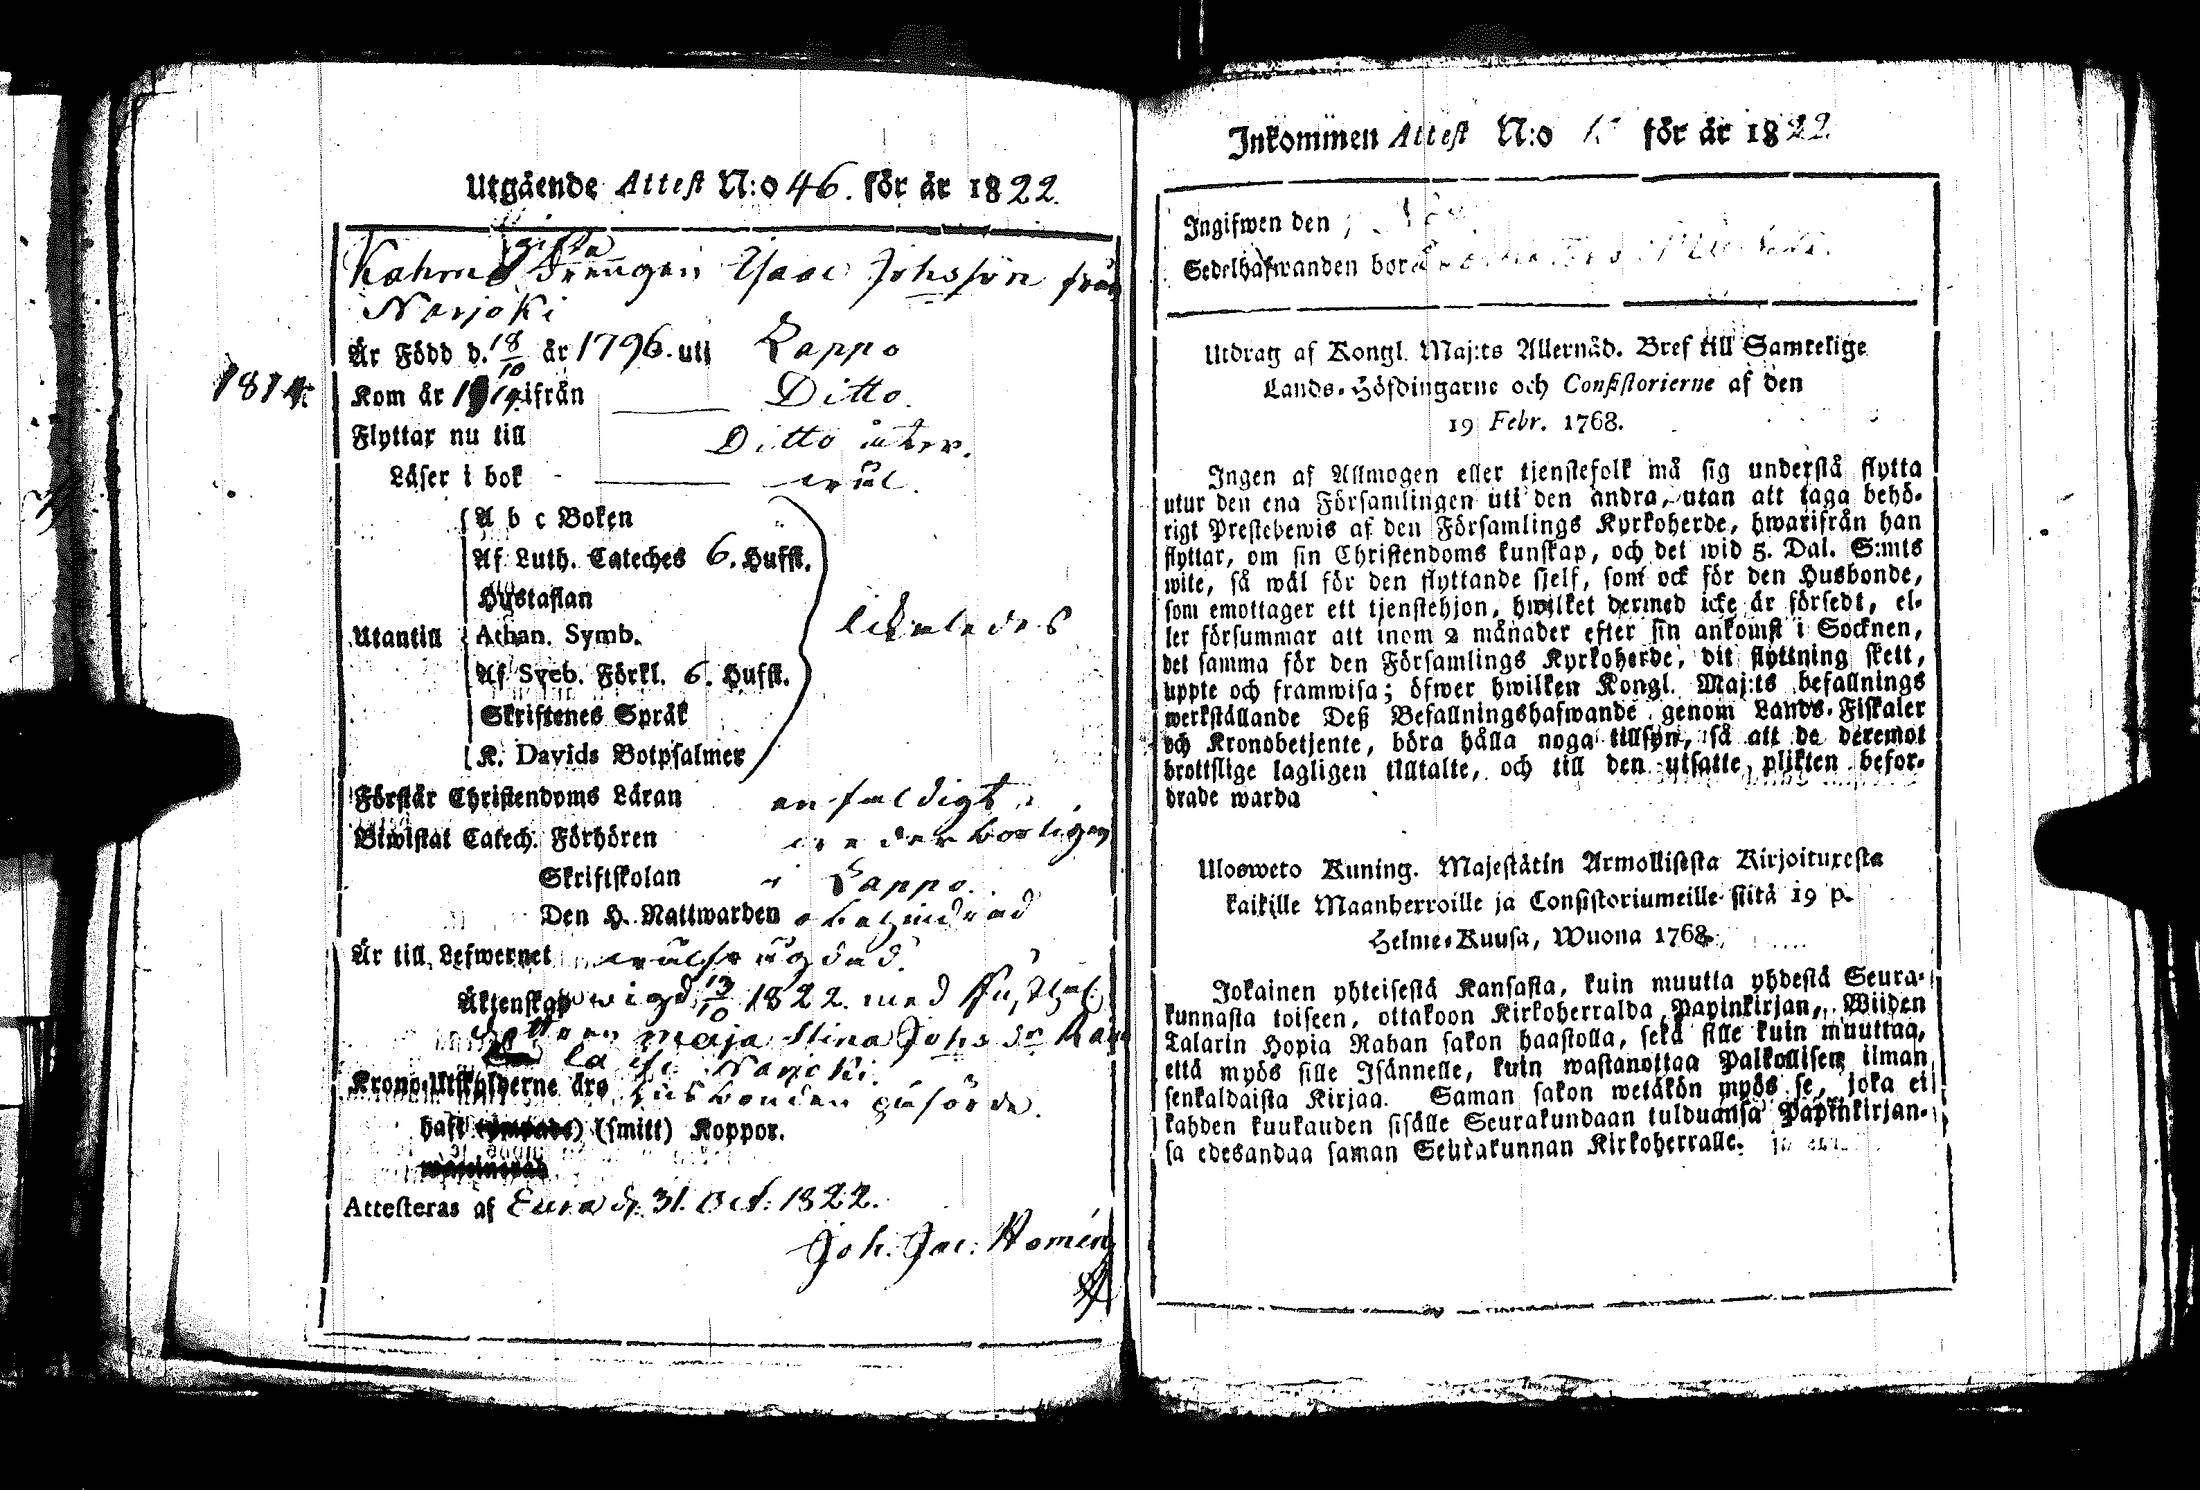 Utgående Attest N:o 46. för år 1822.
gifta
Drengen Isaac Johsson från
Narjoki
Är Född d. 18/10 år 1796. uti Lappo
1814: Kom år 1814 ifrån Ditto.
Flyttar nu till Ditto åter.
Läser i bok wäl.
A b c Boken
Af Luth. Cateches 6. Hufst.
Hustaflan
Utantill Athan. Symb. likaledes
Af Sveb. Förkl. 6. Hufst.
Skriftenes Språk
K. Davids Botpsalmer
Förstår Christendoms Läran enfaldigt.
Biwistat Catech. Förhören wederborligen
Skriftskolan i Lappo.
Den H. Nattwarden obehindrad
Är till Lefwernet wälfrägdad.
Äktenskap wigd 13/10 1822. med
dottren Maja Stina Johs dr
Krono-Utskylderne äro husbonden påförde.
haft (smitt) Koppor.
Attesteras af Eura d. 31. Oct. 1822.
Joh. Jac. Homén
Inkommen Attest N:o för år 1822
Ingifwen den
Sedelhafwanden bor
Utdrag af Kongl. Maj:ts Allernåd. Bref till Samtelige
Lands-Höfdingarne och Consistorierne af den
19 Febr. 1768.
Ingen af Allmogen eller tjenstefolk må sig understå flytta
utur den ena Församlingen uti den andra, utan att taga behö-
rigt Prestebewis af den Församlings Kyrkoherde, hwarifrån han
flyttar, om sin Christendoms kunskap, och det wid 5. Dal. S:mts
wite, så wäl för den flyttande sjelf, som ock för den Husbonde,
som emottager ett tjenstehjon, hwilket dermed icke är försedt, el-
ler försummar att inom 2 månader efter sin ankomst i Socknen,
det samma för den Församlings Kyrkoherde, dit flyttning skett,
uppte och framwisa; öfwer hwilken Kongl. Maj:ts befallnings
werkställande Deß Befallningshafwande genom Lands-Fiskaler
och Kronobetjente, böra hålla noga tillsyn, så att de deremot
brottslige lagligen tilltalte, och till den utsatte plikten befor-
drade warda
Ulosweto Kuning. Majestätin Armollisesta Kirjoituxesta
kaikille Maanherroille ja Consistoriumeille siitä 19 p.
Helme-Kuusa, Wuona 1768.
Jokainen yhteisestä Kansasta, kuin muutta yhdestä Seura-
kunnasta toiseen, ottakoon Kirkoherralda Papinkirjan, Wiiden
Talarin Hopia Rahan sakon haastolla, sekä sille kuin muuttaa,
että myös sille Isännelle, kuin wastanottaa Palkollisen ilman
senkaldaista Kirjaa. Saman sakon wetäkön myös se, joka ei
kahden kuukauden sisälle Seurakundaan tulduansa Papinkirjan-
sa edesandaa saman Seurakunnan Kirkoherralle.